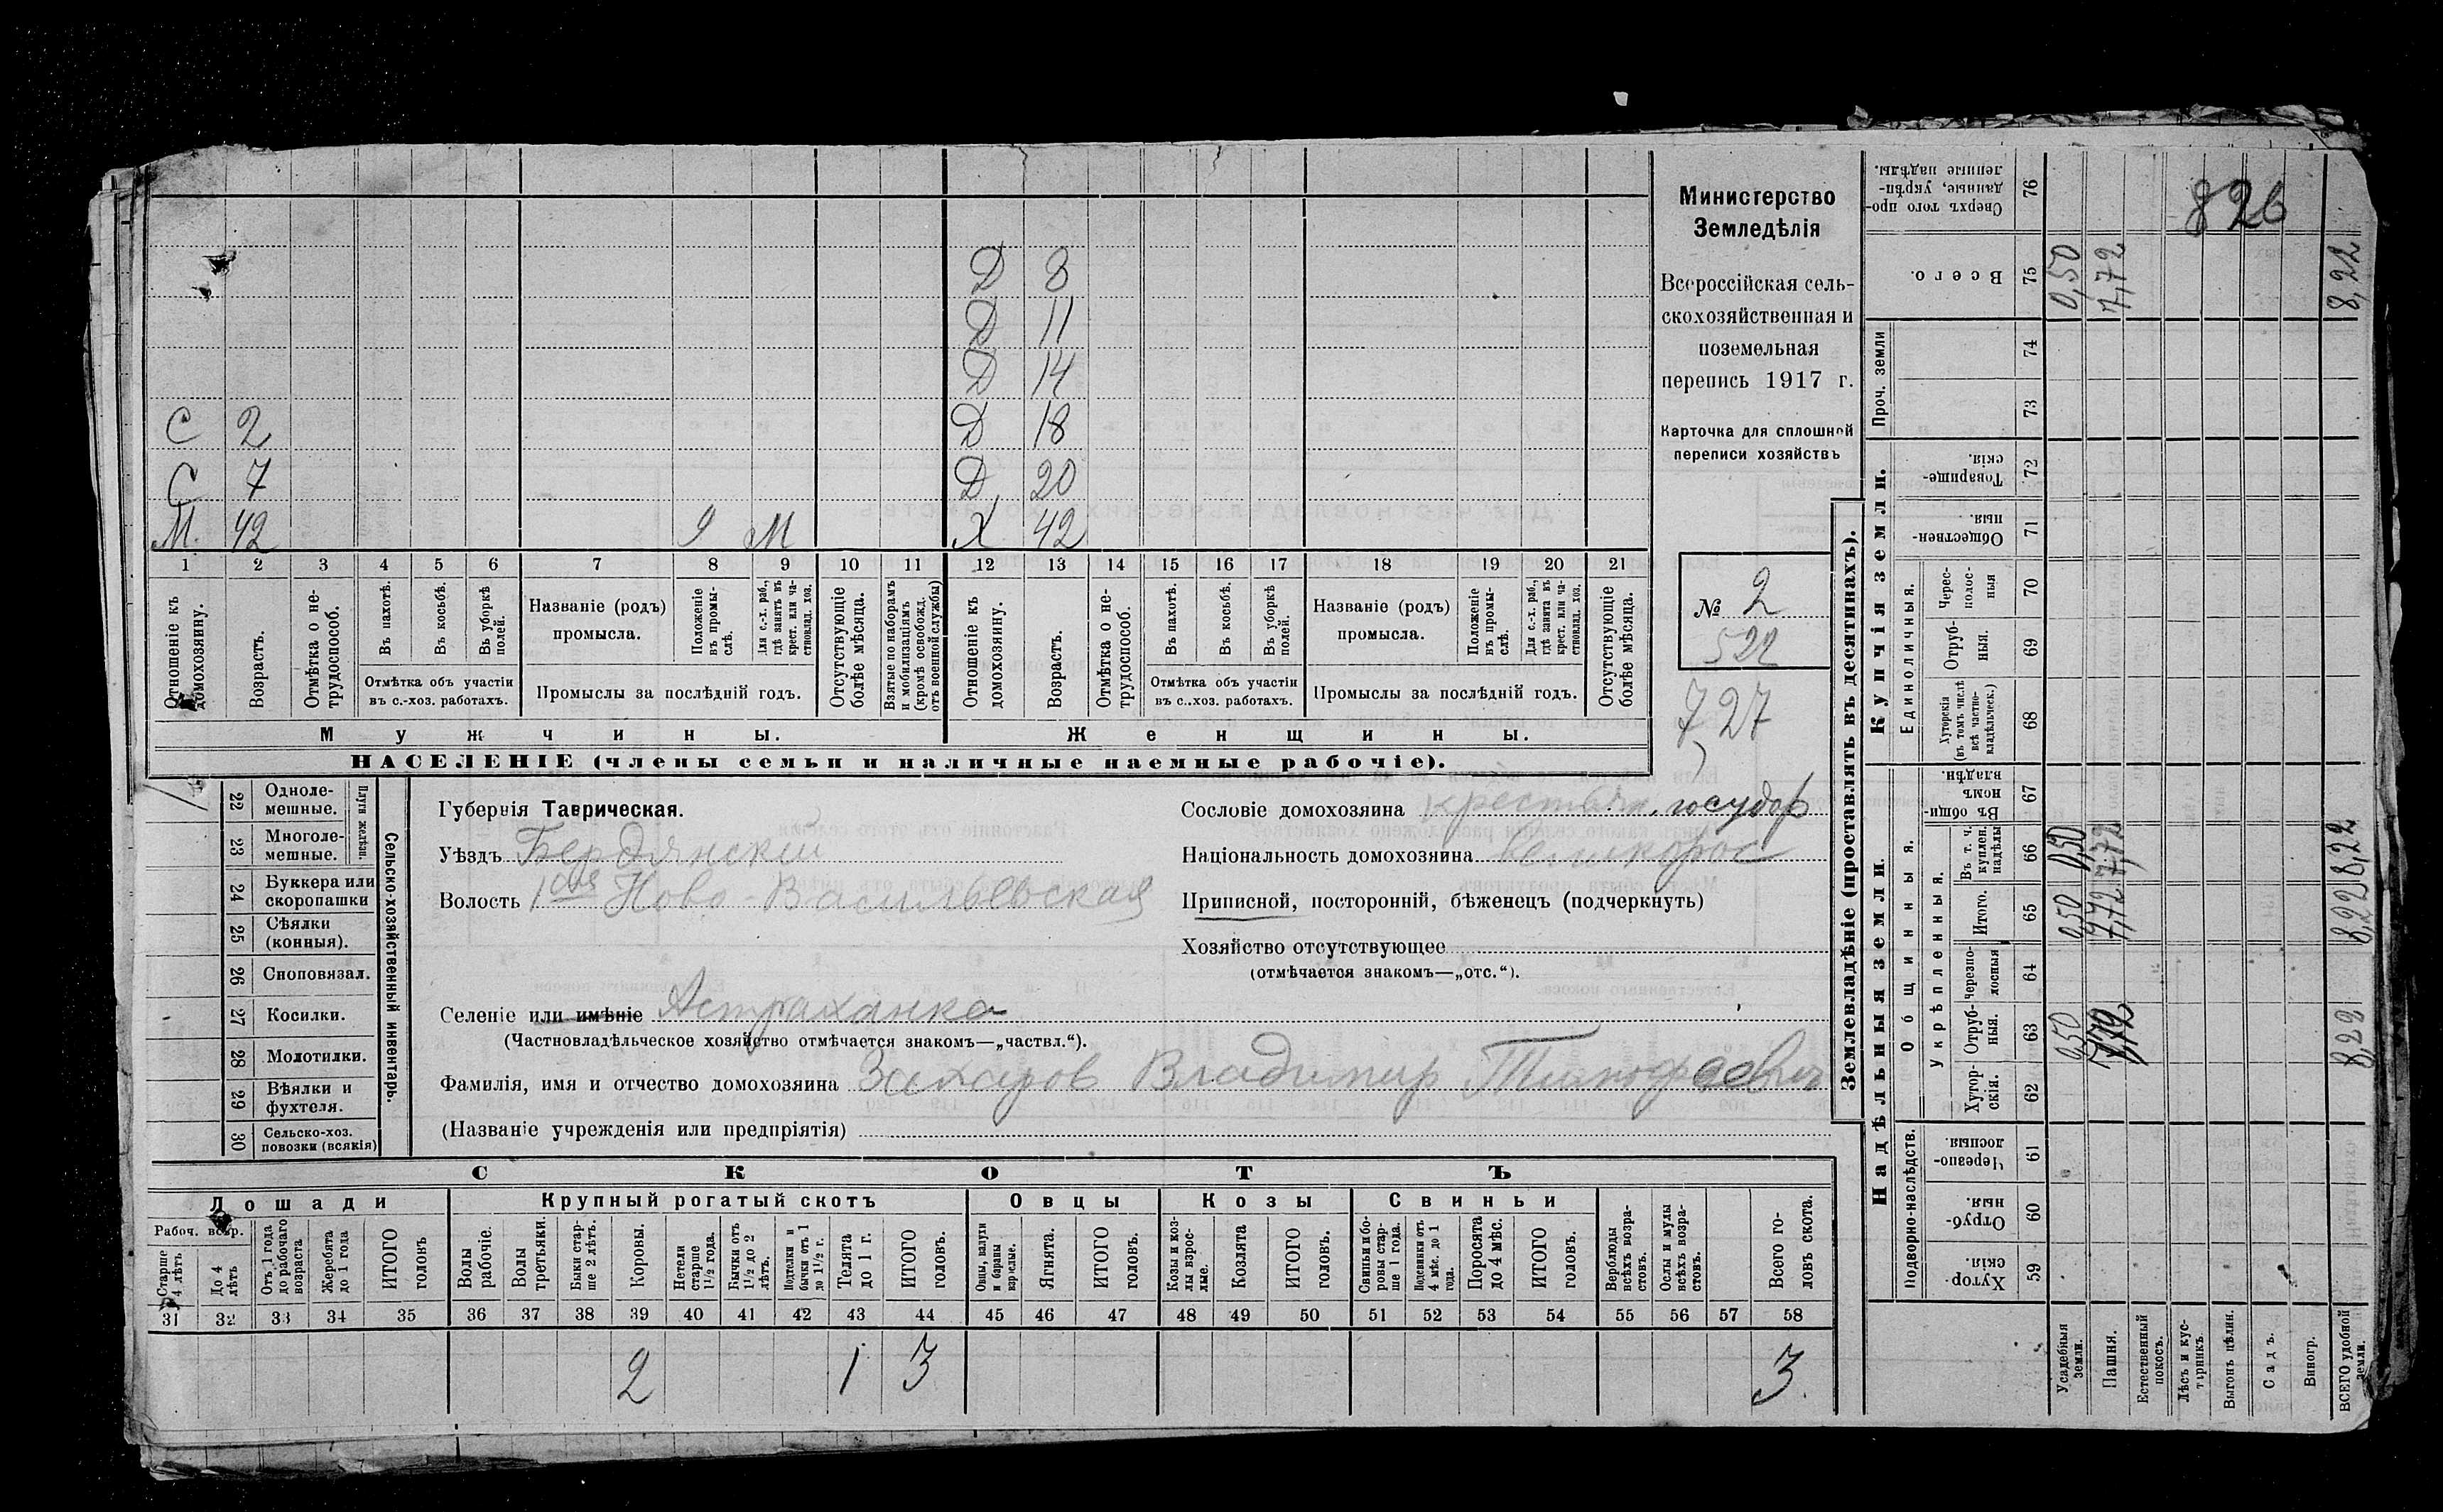 Министерство
Земледѣлія
Всероссійская сель-
скохозяйственная и
поземельная
перепись 1917 г.
Карточка для сплошной
переписи хозяйствъ
№ 2
522
727
Д 8
Д 11
Д 14
С 2 Д 18
С 7 Д 20
М. 42 М Х 42
1 2 3 4 5 6 7 8 9 10 11 12 13 14 15 16 17 18 19 20 21
Отношеніе къ домохозяину.
Возрастъ.
Отмѣтка о не-
трудоспособ.
Въ пахотѣ.
Въ косьбѣ.
Въ уборкѣ
полей.
Отмѣтка объ участіи
въ с.-хоз. работахъ.
Названіе (родъ)
промысла.
Положеніе
въ промы-
слѣ.
Для с.-х. раб.,
гдѣ занятъ въ
крест. или ча-
стновлад. хоз.
Промыслы за послѣдній годъ.
Отсутствующіе
болѣе мѣсяца.
Взятые по наборамъ
и мобилизаціямъ
(кромѣ освобожд.
отъ военной службы)
Отношеніе къ
домохозяину.
Возрастъ.
Отмѣтка о не-
трудоспособ.
Въ пахотѣ.
Въ косьбѣ.
Въ уборкѣ
полей.
Отмѣтка объ участіи
въ с..хоз. работахъ.
Названіе (родъ)
промысла.
Положеніе
въ промы-
слѣ.
Для с.-х. раб.,
гдѣ занята въ
крест. или ча-
стновлад. хоз.
Промыслы за послѣдній годъ.
Отсутствующіе
болѣе мѣсяца.
Мужчины.
Женщины.
НАСЕЛЕНІЕ (члены семьи и наличные наемные рабочіе).
22 Одноле-
мешные.
23 Многоле-
мешные.
Плуги желѣзн.
24 Буккера или
скоропашки
25 Сѣялки
(конныя).
26 Сноповязал.
27 Косилки.
28 Молотилки.
29 Вѣялки и
фухтеля.
30 Сельско-хоз.
повозки (всякія)
Сельско-хозяйственный инвентарь.
Губернія Таврическая.
Уѣздъ Бердянскій
Волость 1ая Ново-Васильевская
Селеніе или имѣніе Астраханка
(Частновладѣльческое хозяйство отмѣчается знакомъ—„частвл.“).
Фамилія, имя и отчество домохозяина Захаров Владимир Тимофеевич
(Названіе учрежденія или предпріятія)
Сословіе домохозяина крестьян. государ
Національность домохозяина великорос
Приписной, посторонній, бѣженецъ (подчеркнуть)
Хозяйство отсутствующее
(отмѣчается знакомъ—„отс.“).
СКОТЪ
Лошади
Крупный рогатый скотъ
Овцы
Козы
Свиньи
Рабоч. возр.
Старше
4 лѣтъ
До 4
лѣтъ
Отъ 1 года
до рабочаго
возраста
Жеребята
до 1 года
ИТОГО
головъ
Волы
рабочіе.
Волы
третьяки.
Быки стар-
ше 2 лѣтъ.
Коровы.
Нетели
старше
1½ года.
Бычки отъ
1½ до 2
лѣтъ.
Подтелки и
бычки отъ 1
до 1½ г.
Телята
до 1 г.
ИТОГО
головъ.
Овцы, валухи
и бараны
взрослые.
Ягнята.
ИТОГО
головъ.
Козы и коз-
лы взрос-
лые.
Козлята
ИТОГО
головъ.
Свиньи и бо-
ровы стар-
ше 1 года.
Подсвинки отъ
4 мѣс. до 1
года.
Поросята
до 4 мѣс.
ИТОГО
головъ.
Верблюды
всѣхъ возра-
стовъ.
Ослы и мулы
всѣхъ возра-
стовъ.
Всего го-
ловъ скота.
31 32 33 34 35 36 37 38 39 40 41 42 43 44 45 46 47 48 49 50 51 52 53 54 55 56 57 58
2 1 3 3.
Землевладѣніе (проставлять въ десятинахъ).
Надѣльныя земли.
Купчія земли.
Проч. земли
Подворно-наслѣдств.
Общинныя.
Укрѣпленныя.
Единоличныя.
Сверхъ того про-
данные, укрѣп-
ленные надѣлы.
76
826
Всего.
75 0,50 7,72 8,22
74
73
Товарище-
скія.
72
Обществен-
ныя.
71
Черес-
полос-
ныя
70
Отруб-
ныя.
69
Хуторскія
(въ томъ числѣ
всѣ частно-
владѣльческ.)
68
Въ общи
номъ
владѣн.
67
Въ т. ч.
куплен.
надѣлы
66 0,50 7,72 8,22
Итого.
65 0,50 7,72 8,22
Черезпо-
лосныя
64
Отруб-
ныя.
63 0,50 7,72 8,22
Хутор-
скія.
62
Черезпо-
лосныя
61
Отруб-
ныя.
60
Хутор
скія.
59
Усадебныя
земли.
Пашня.
Естественный
покосъ.
Лѣсъ и кус-
тарникъ.
Выгонъ цѣлин.
Садъ.
Виногр.
ВСЕГО удобной
земли.